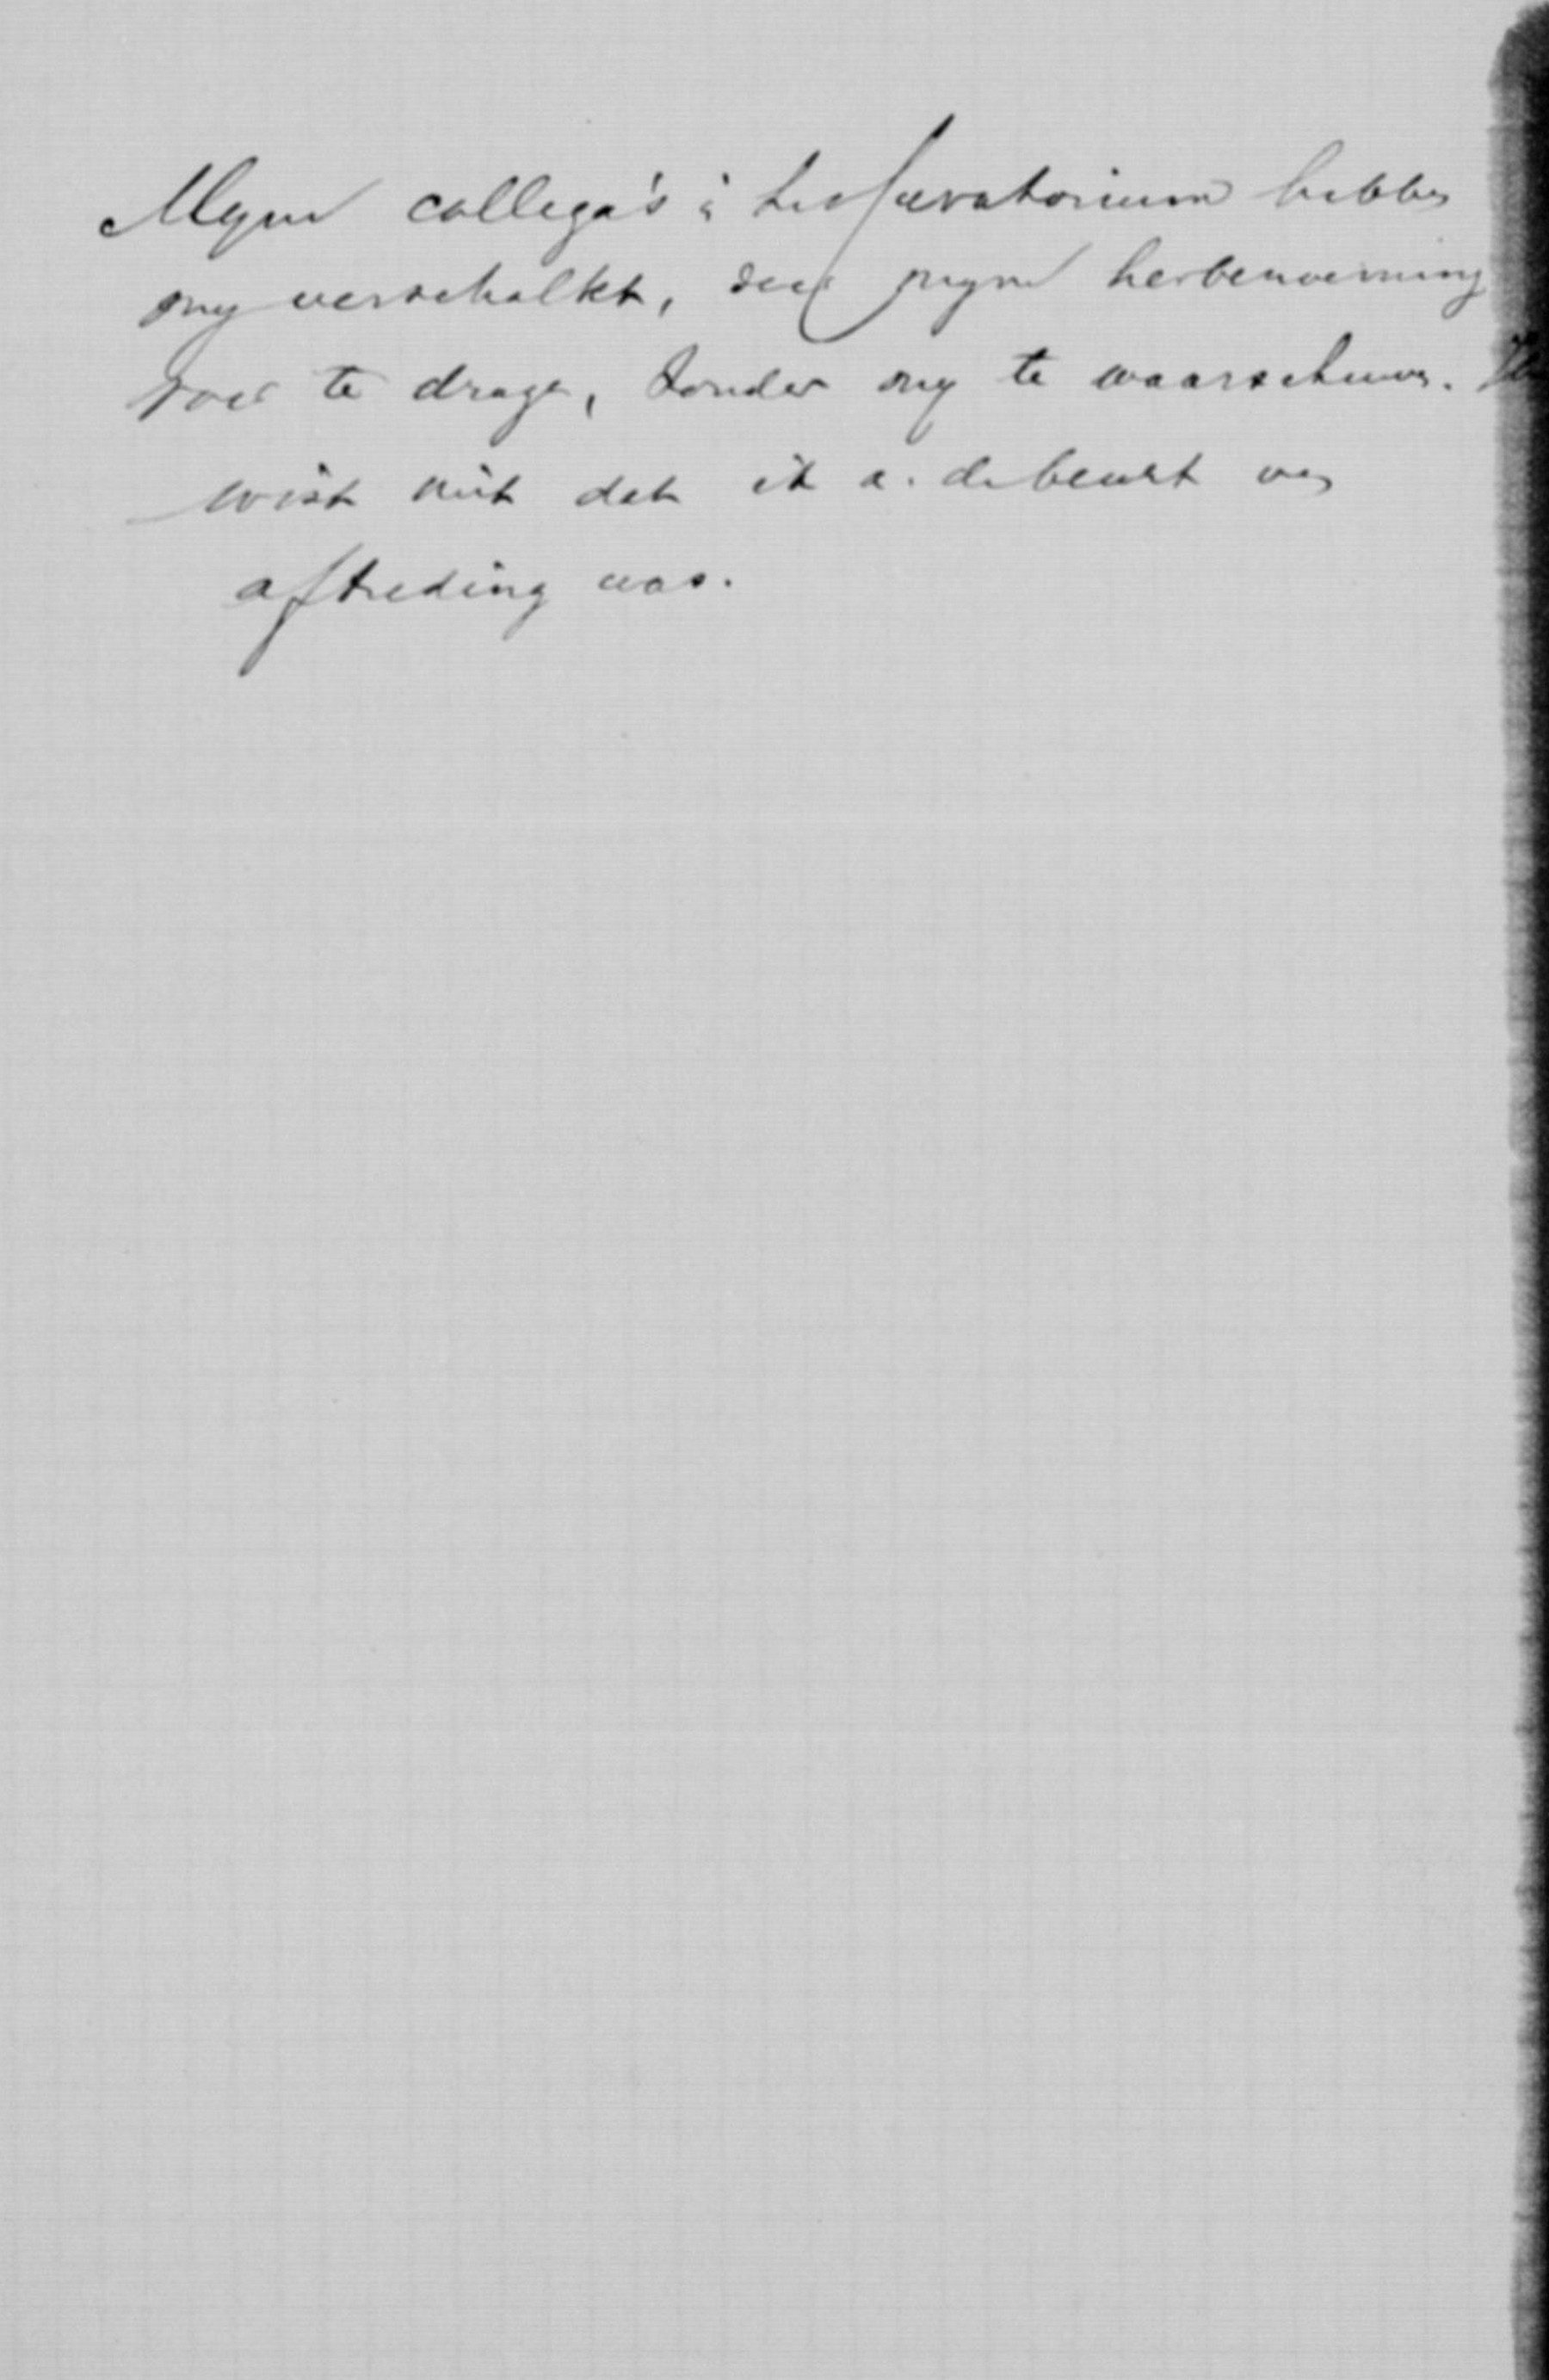 Mijne collega's i het servatorium hebben
mij verschalkt, door mijne herbenoeming
voor te dragen, zonder mij te waarschuwen. Ik
wist niet dat ik a. de beurt van
aftreding was.